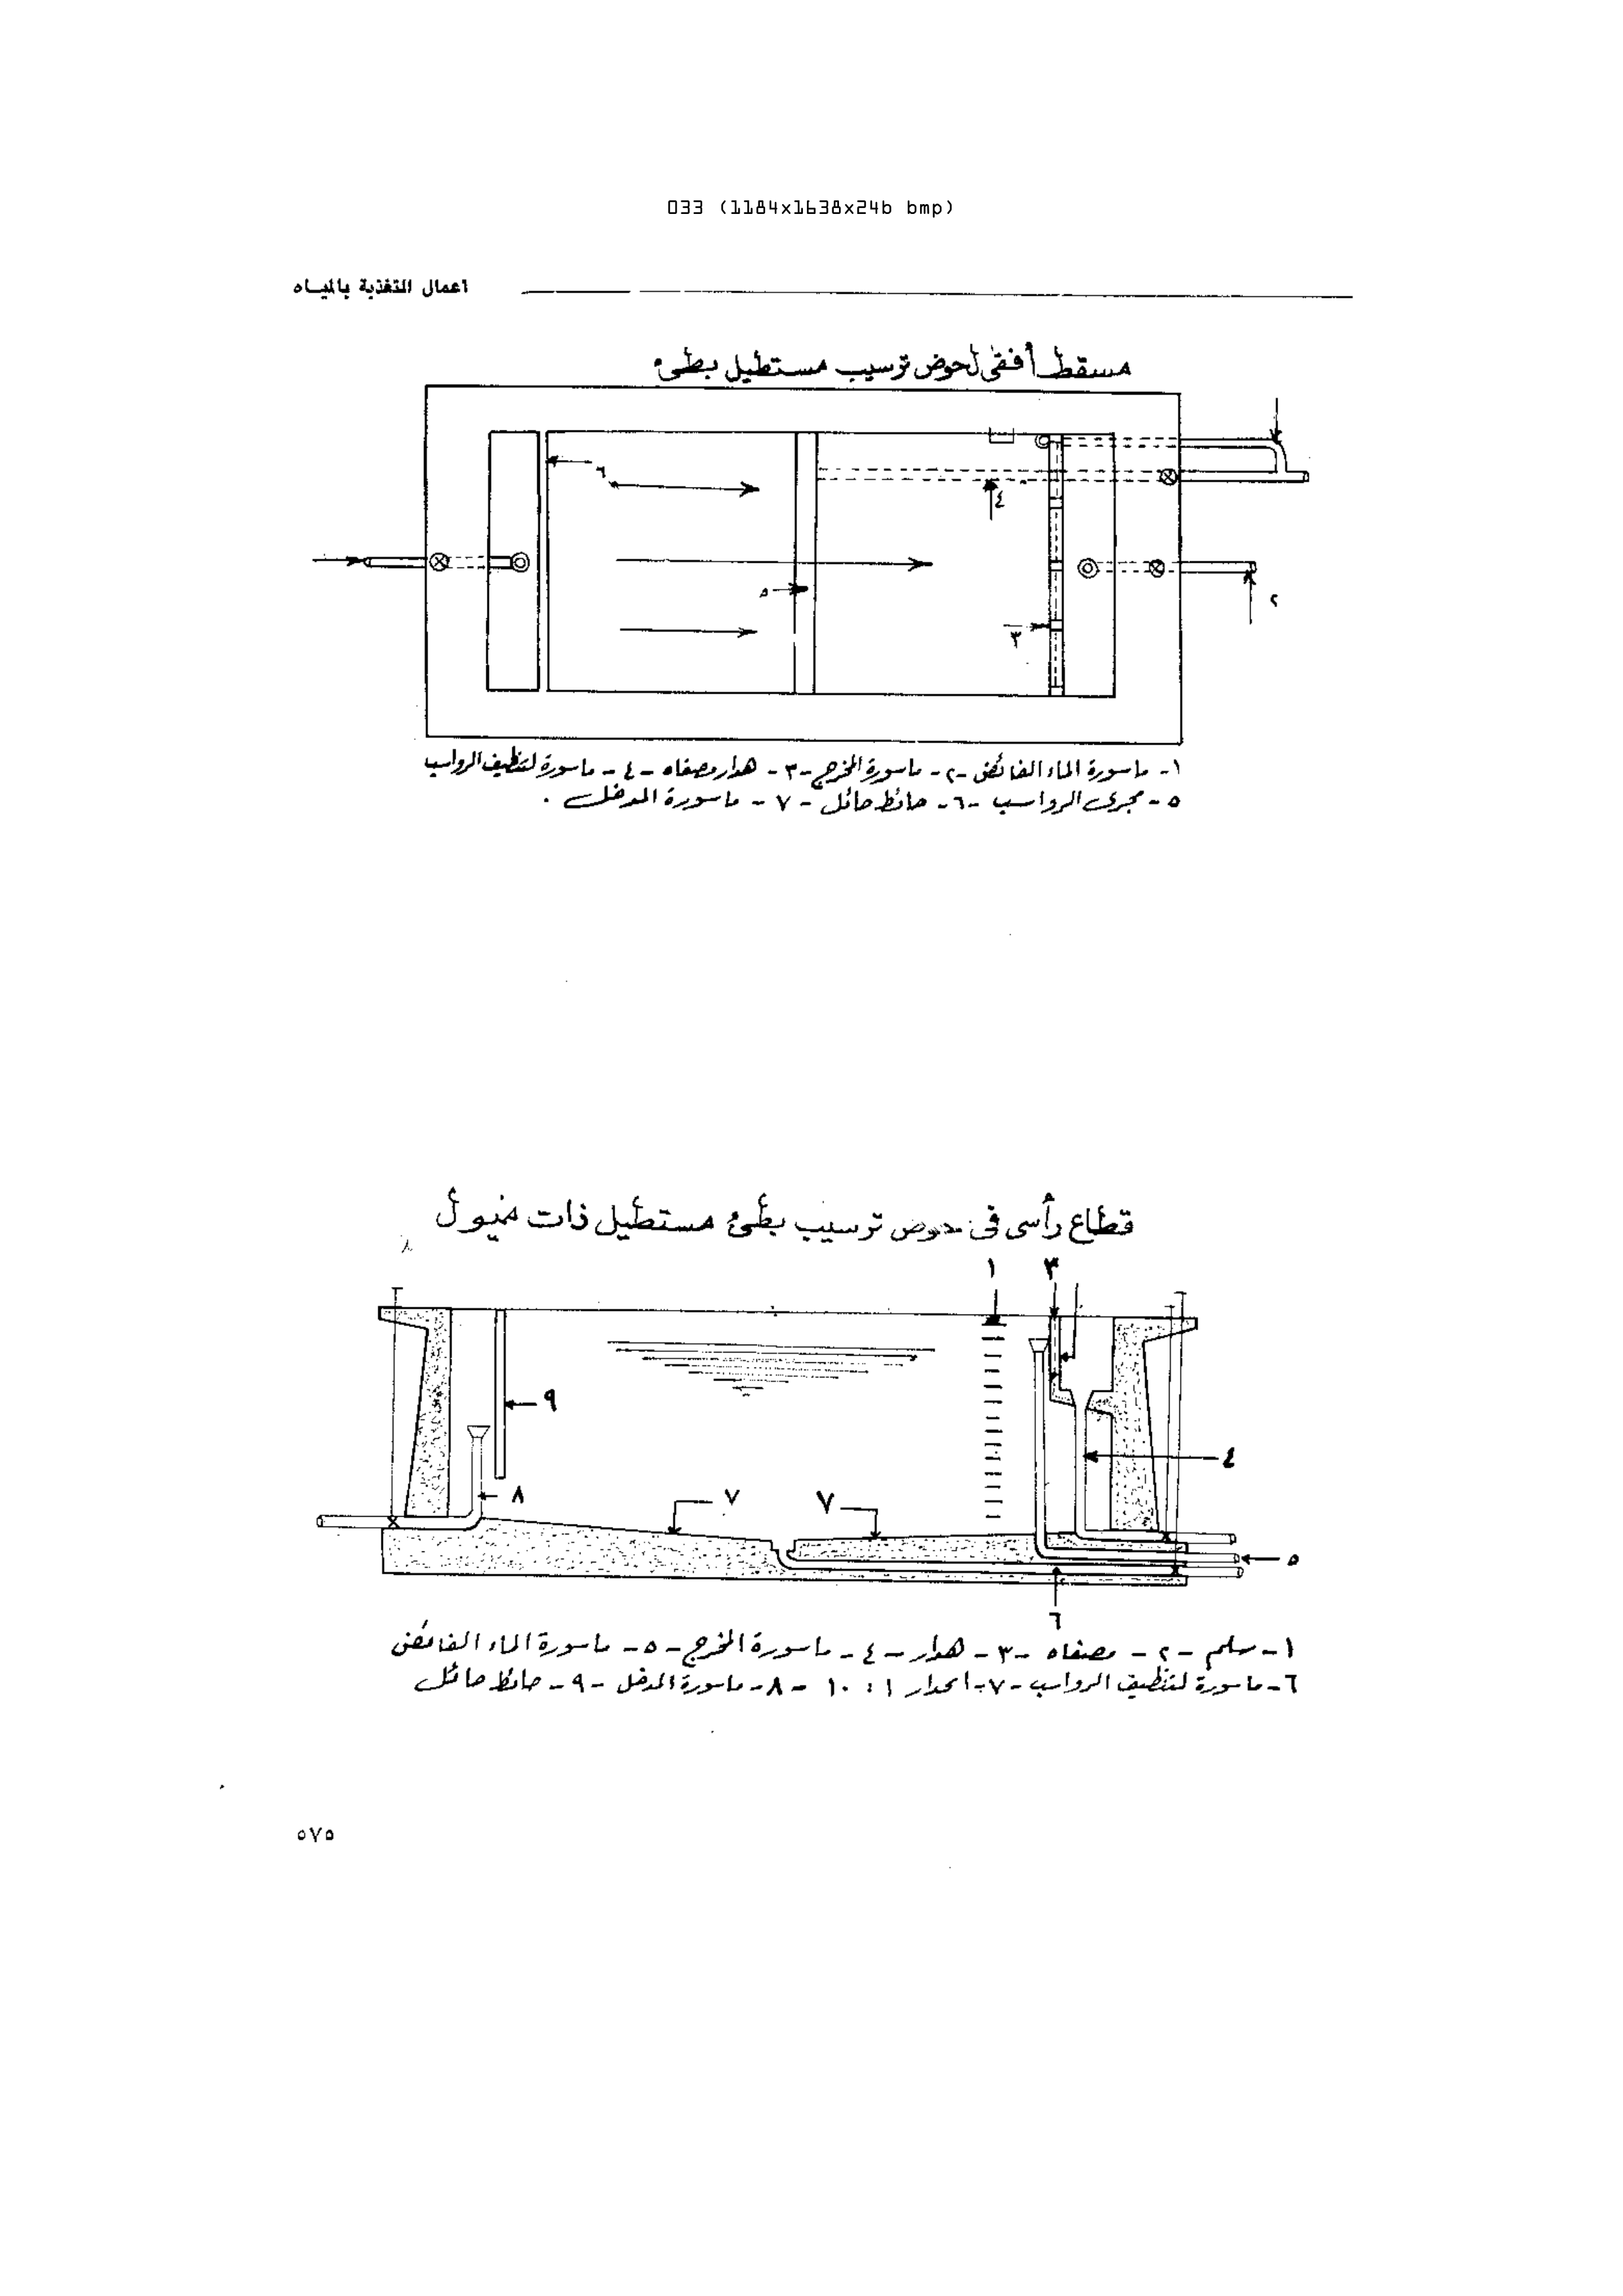 033 (1184x1638x24b bmp)
اعمال التغذية بالمياه
مسقط أفقى لحوض ترسيب مستطيل بطىء
٦
٤
٥
٢
٣
١- ماسورة الماء الفائض -٢- ماسورة المخرج -٣- هدار ومصفاه -٤- ماسورة لتنظيف الرواسب
٥- مجرى الرواسب -٦- حائط حائل -٧- ماسورة المدخل .
قطاع رأسى فى حوض ترسيب بطئ مستطيل ذات
١ ٣
٩
٤
٨ ٧ ٧
٥
٦
١- سلم -٢- مصفاه -٣- هدار -٤- ماسورة المخرج -٥- ماسورة الماء الفائض
٦- ماسورة لتنظيف الرواسب -٧- انحدار ١ : ١٠ -٨- ماسورة المدخل -٩- حائط حائل
٥٧٥